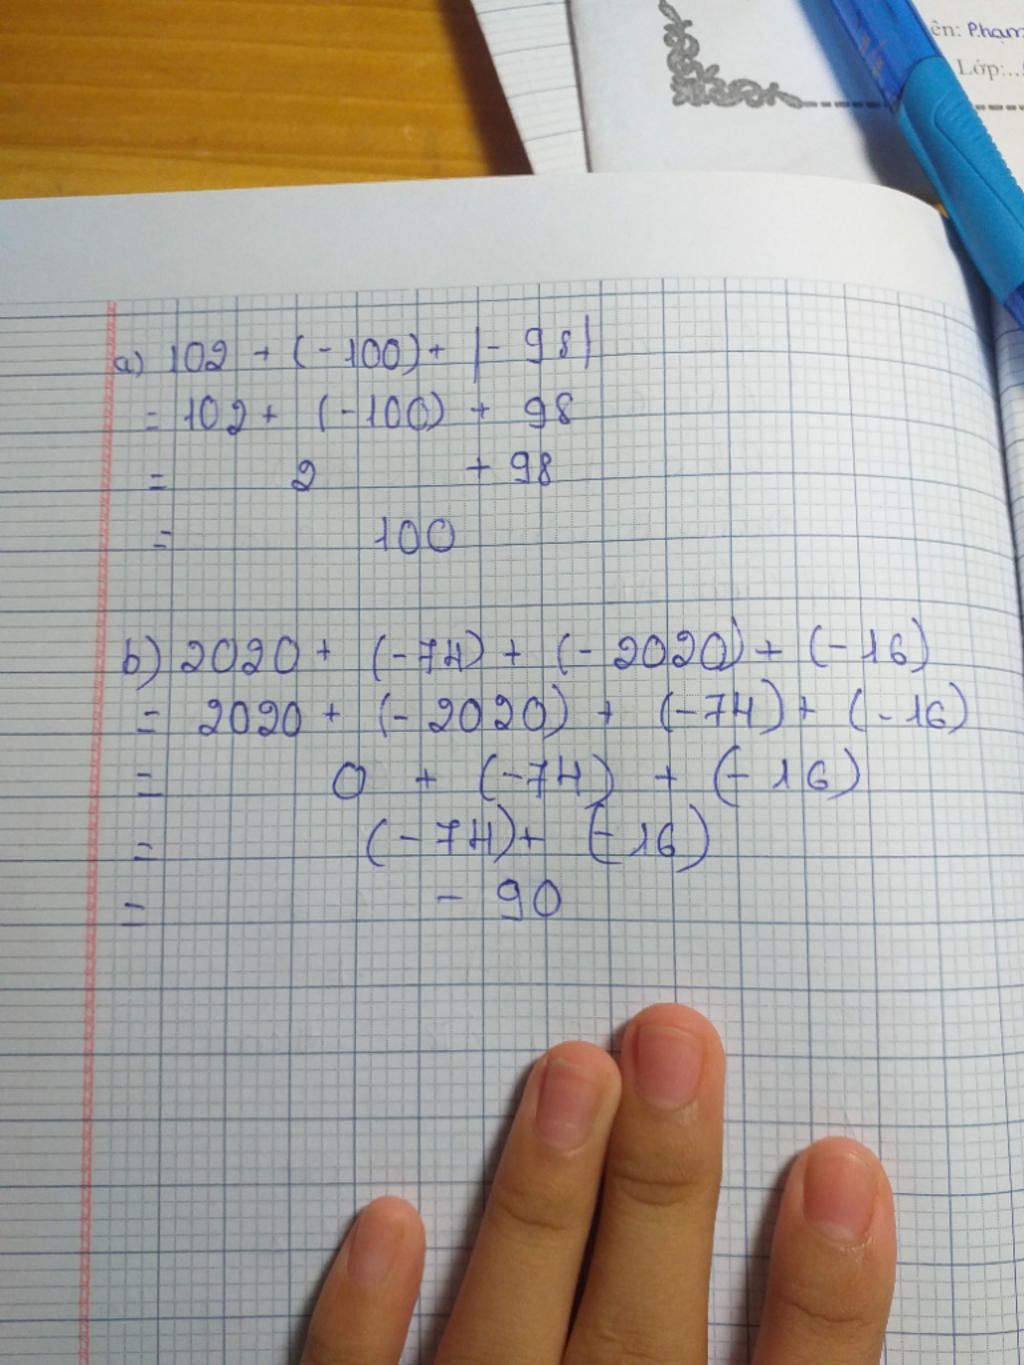 ên: Phạm
Lớp:...
a) 102 + (-100) + |- 98|
= 102 + (-100) + 98
= 2 + 98
= 100
b) 2020 + (-74) + (- 2020) + (-16)
= 2020 + (- 2020) + (-74) + (-16)
= 0 + (-74) + (-16)
= (-74) + (-16)
= - 90